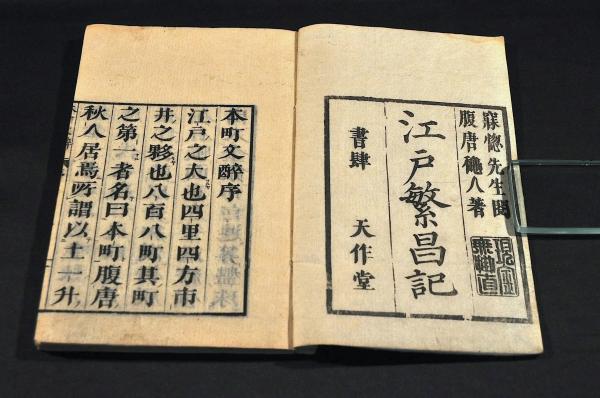 寐惚先生閲
腹唐穐人著
江戸繁昌記
書肆 天作堂
本町文醉序
江戸之大也四里四方市
井之夥也八百八町其町
之第一者名曰本町腹唐
秋人居焉所謂以土一升